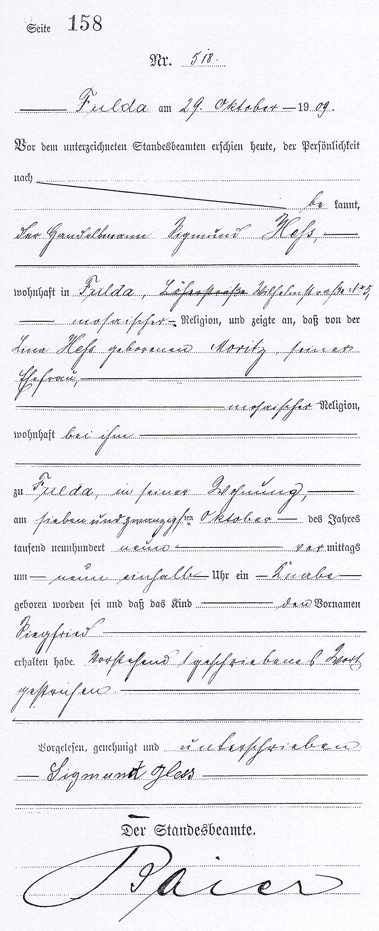 Seite 158
Nr. 518.
Fulda am 29. Oktober 1909.
Vor dem unterzeichneten Standesbeamten erschien heute, der Persönlichkeit
nach
be kannt,
der Handelsmann Sigmund Heß,
wohnhaft in Fulda, Löherstraße Wilhelmstraße
mosaischer Religion, und zeigte an, daß von der
Lina Heß geborenen Moritz, seiner
Ehefrau,
mosaischer Religion,
wohnhaft bei ihm
zu Fulda, in seiner Wohnung,
am siebenundzwanzigsten Oktober des Jahres
tausend neunhundert neun vor mittags
um neun einhalb Uhr ein Knabe
geboren worden sei und daß das Kind den Vornamen
Siegfried
erhalten habe. Vorstehend 1 geschriebenes Wort
gestrichen.
Vorgelesen, genehmigt und unterschrieben
Sigmund Hess
Der Standesbeamte.